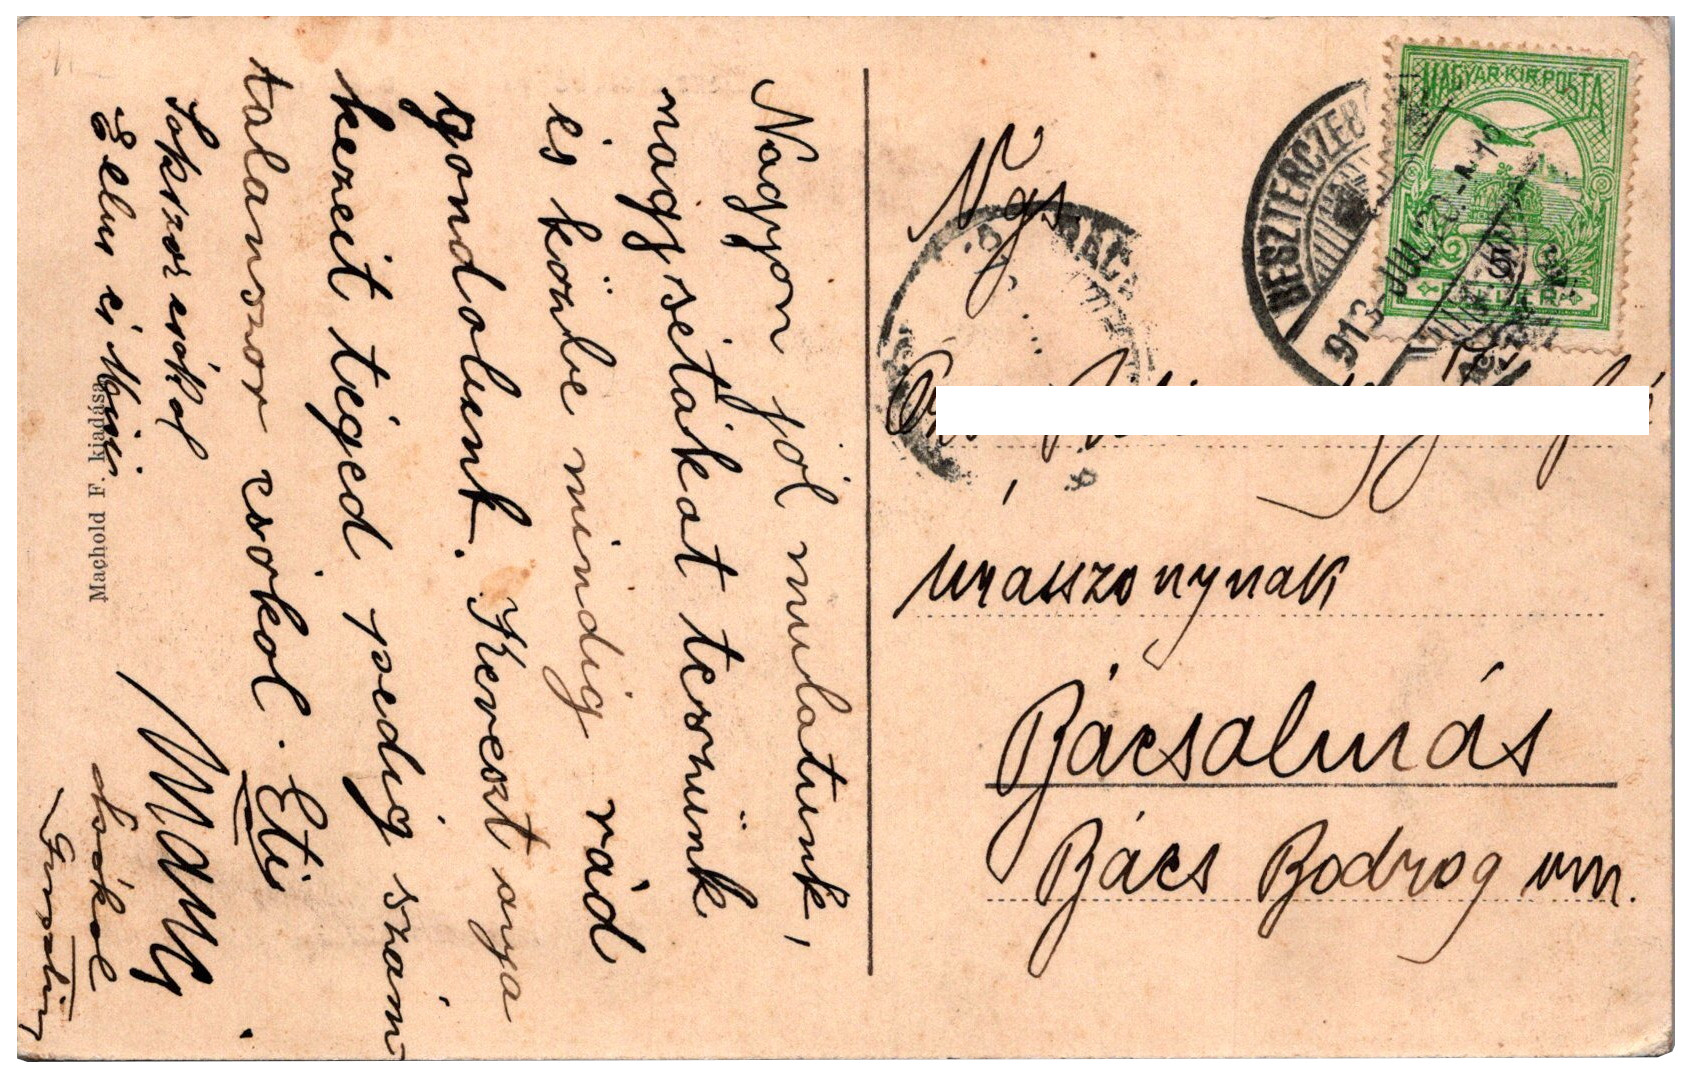 Nagyon jól mulatunk,
nagy sétákat teszünk
és közbe mindig rád
gondolunk. Kereszt anya
kezeit téged pedig szám
talanszor csókol. Eti
Sokszor csókol
Ellus és Mici.
csókol
Machold F. kiadása
MAGYAR KIR. POSTA
5
FILLÉR
BESZTERCZEB
913 JUL. 28.
Ngs
uraszzonynak
Bácsalmás
Bács Bodrog vm.